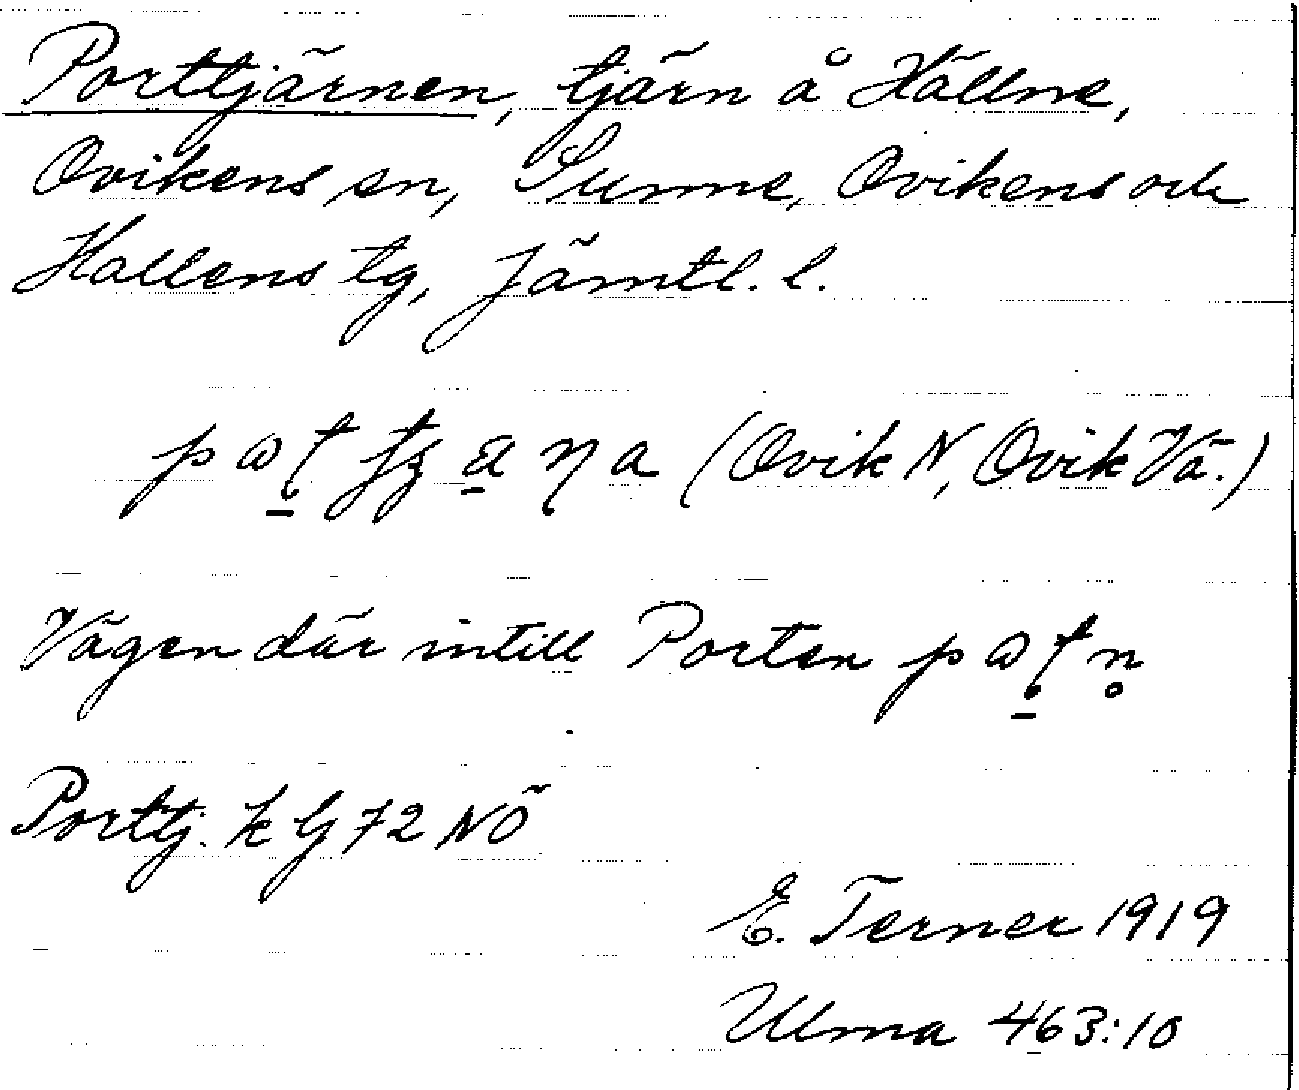 Porttjärnen, tjärn å Hällne,
Ovikens sn, Sunne, Ovikens och
Hallens tg, Jämtl. l.
(Ovik N, Ovik Vä.)
Vägen där intill Porten
Porttj. k G 72 NÖ
E. Terner 1919
Ulma 463:10